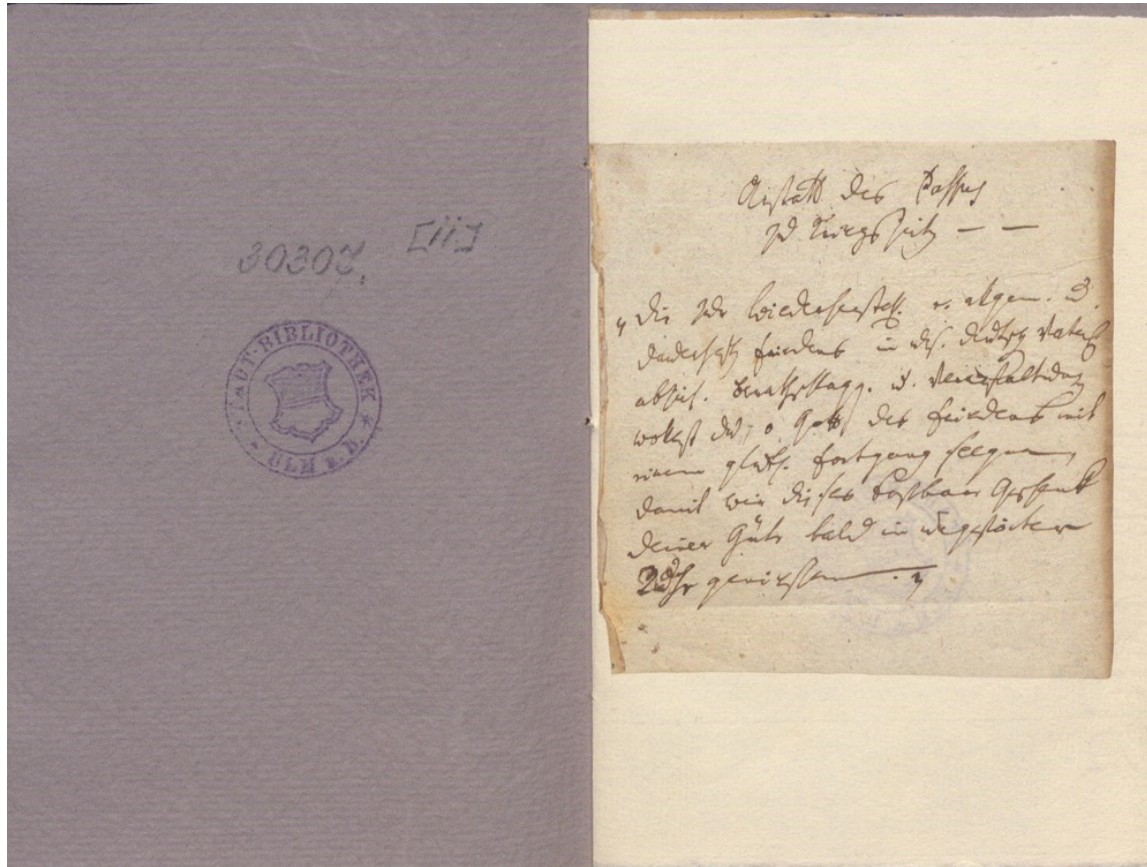 30307. [11]
STADT-BIBLIOTHEK
ULM a. D.
Anstatt des Passus
zu Kriegszeiten — —
„Die zur Wiederherstell. e. allgem. u.
dauerhaften Friedens in uns. deutschen Vaterl.
absich. Berathschlagg. u. Veranstaltungen
wollest du, o Gott des Friedens mit
einem glükl. Fortgang seegnen,
damit wir dieses kostbare Geschenk
deiner Güte bald in ungestörter
Ruhe geniessen.